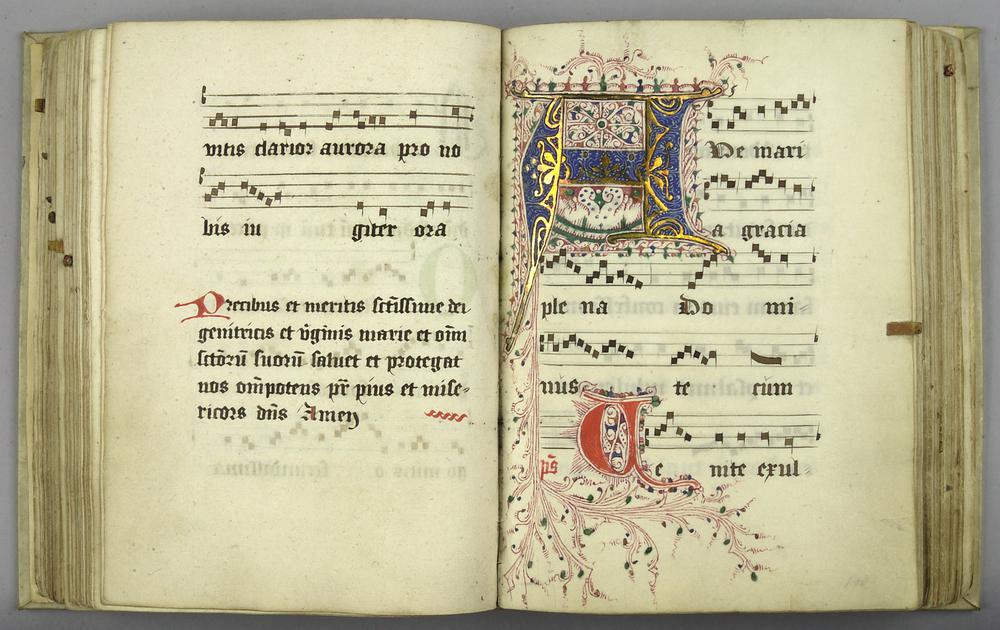 vitis clarior aurora pro no
bis iu giter ora
Precibus et meritis sctissime dei
genitricis et v̄ginis marie et om̄i
sctōrū suorū saluet et protegat
nos om̄potens pr̄ pius et mise-
ricors dn̄s Amen
A Ve mari
a gracia
ple na Do mi
nus te cum
ps̄ Ve nite exul